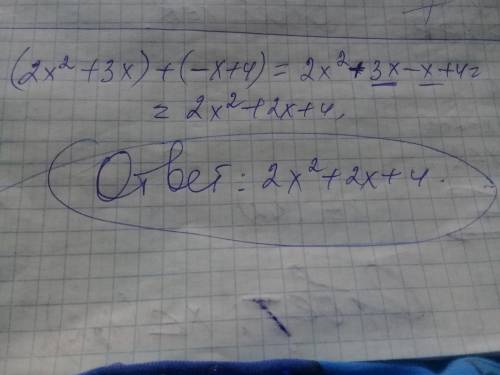 (2x² + 3x) + (-x+4) = 2x² + 3x - x + 4 =
= 2x² + 2x + 4,
Ответ: 2x² + 2x + 4.